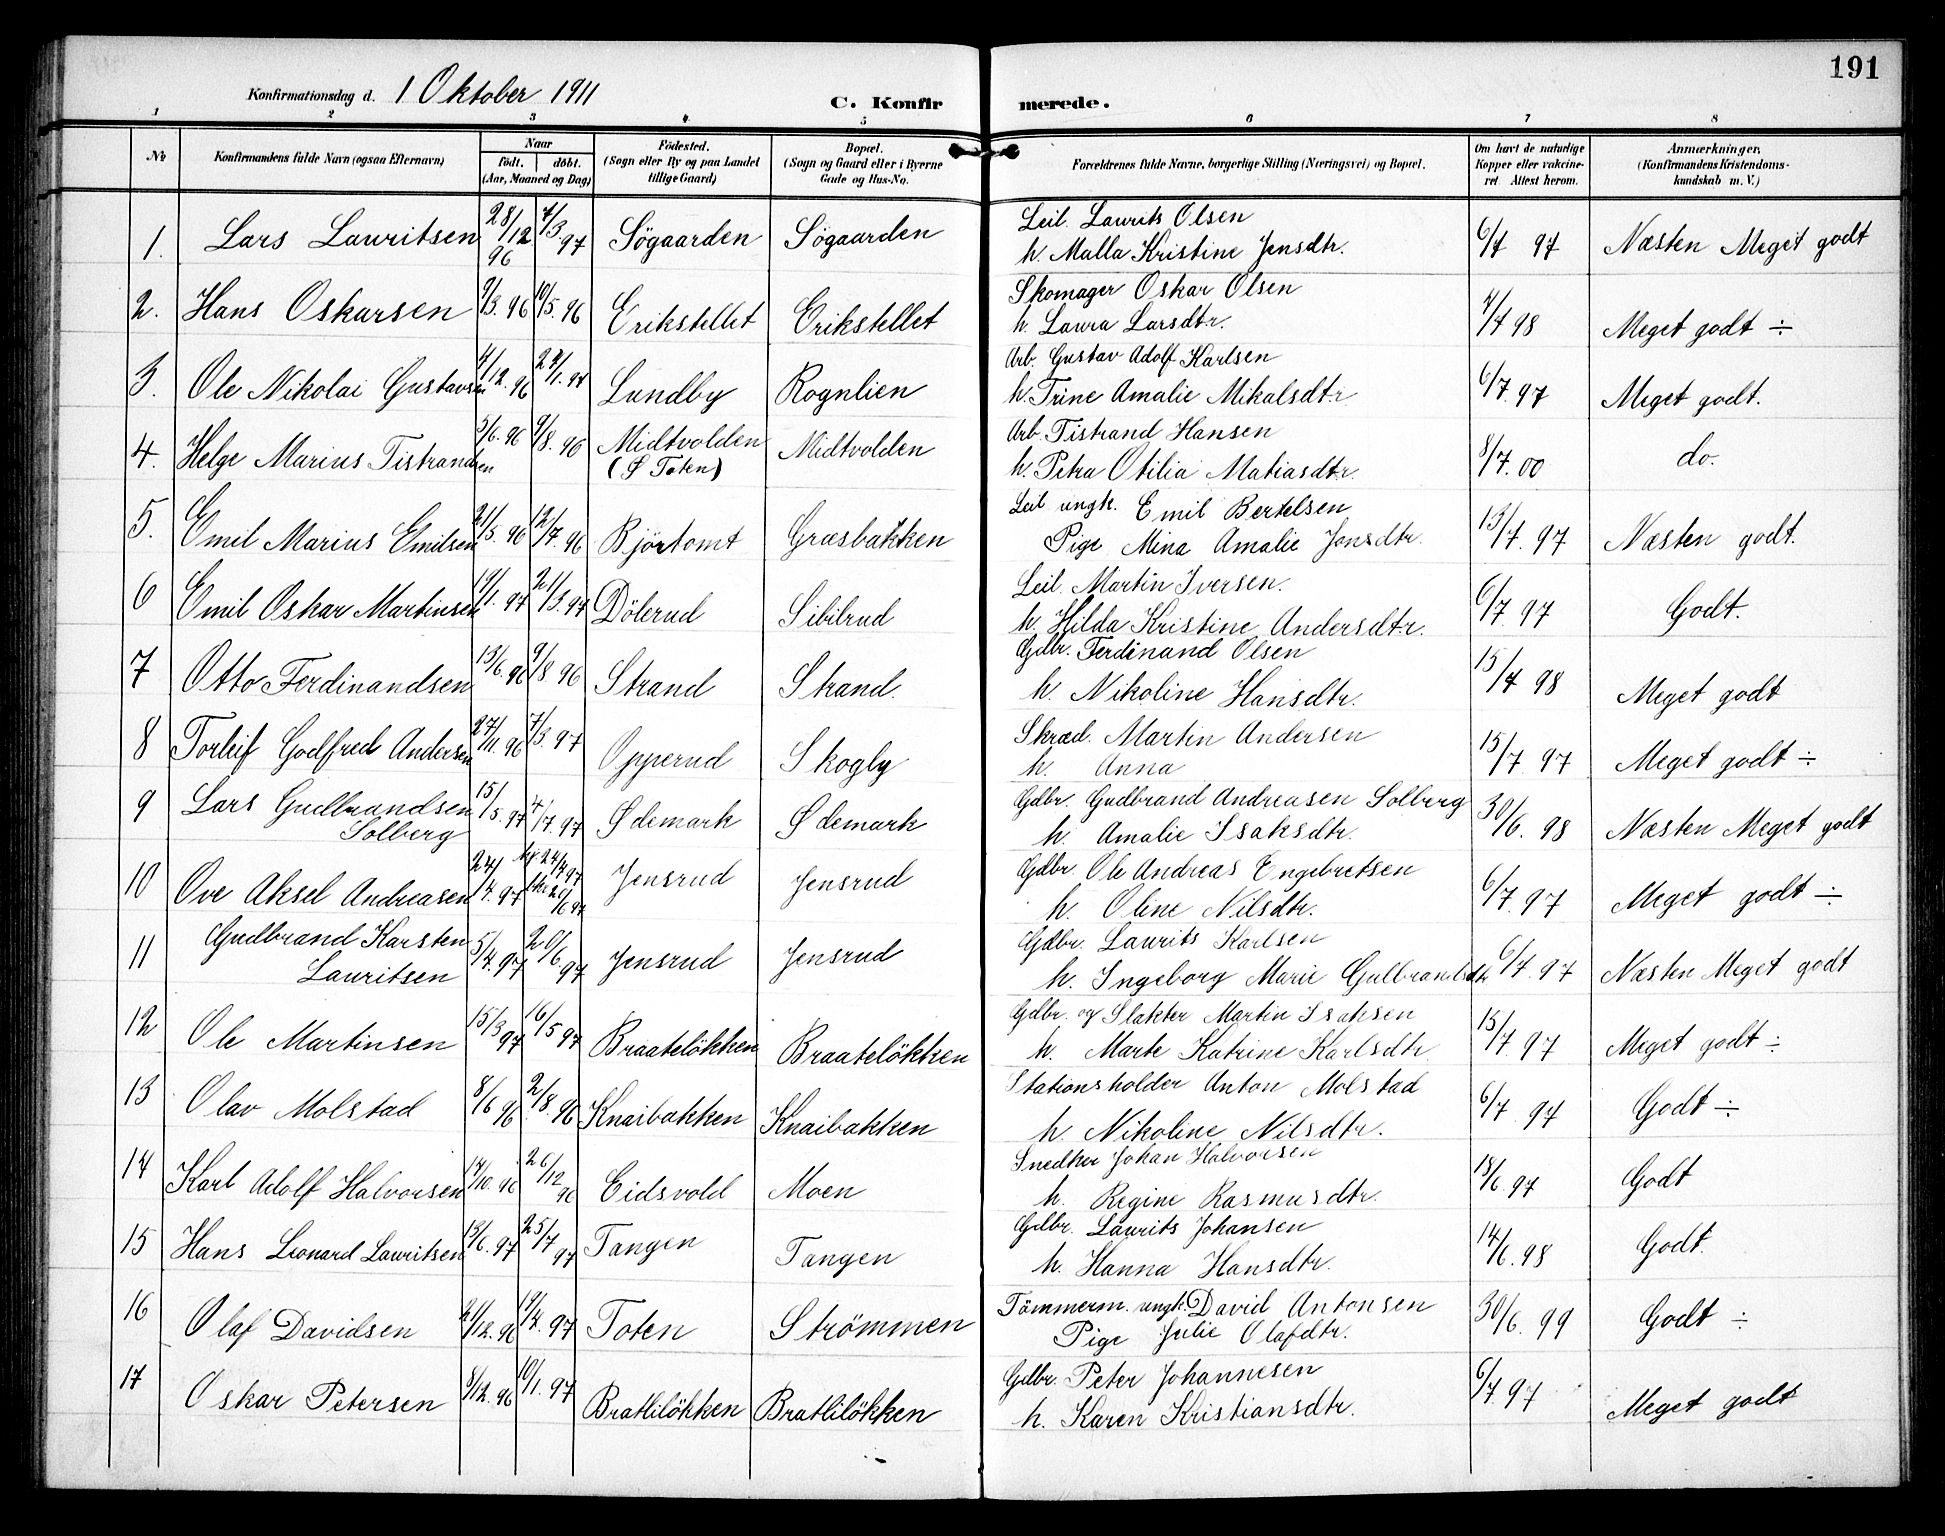 191
Konfirmationsdag d. 1 Oktober 1911
C. Konfir merede.
1 2 3 4 5 6 7 8
No
Konfirmandens fulde Navn (ogsaa Efternavn)
Naar
født. døbt.
(Aar, Maaned og Dag)
Fødested.
(Sogn eller By og paa Landet
tillige Gaard)
Bopæl.
(Sogn og Gaard eller i Byerne
Gade og Hus-No.
Forældrenes fulde Navne, borgerlige Stilling (Næringsvei) og Bopæl.
Om havt de naturlige
Kopper eller vakcine-
ret. Attest herom.
Anmærkninger,
(Konfirmandens Kristendoms-
kundskab m. V.)
1. Lars Lauritsen 28/12 96 7/3. 97 Søgaarden Søgaarden Leil. Laurits Olsen
h. Malla Kristine Jensdtr. 6/7 97 Næsten Meget godt
2. Hans Oskarsen 9/3. 96 10/5. 96 Erikstellet Erikstellet Skomager Oskar Olsen
h. Laura Larsdtr. 7/7 98 Meget godt ÷
3. Ole Nikolai Gustavsen 4/12. 96 Lundby Rognlien Arb. Gustav Adolf Karlsen
h. Trine Amalie Mikalsdtr 6/7. 97 Meget godt.
4. Helge Marius Tistrandsen 5/6. 96 9/8. 96 Midtvolden
(Ø Toten) Midtvolden Arb. Tistrand Hansen
h. Petra Otilia Matiasdtr. 8/7. 00 do.
5. Emil Marius Emilsen 21/5. 96 12/7. 96 Bjørtomt Græsbakken Leil ungk. Emil Bertelsen
Pige Mina Amalie Jonsdtr. 13/7. 97 Næsten godt.
6 Emil Oskar Martinsen 19/1. 97 21/3. 97 Dølerud Sibilrud Leil. Martin Iversen.
h. Hilda Kristine Andersdtr. 6/7. 97 Godt.
7 Otto Ferdinandsen 13/6. 96 9/8 96 Strand Strand. Gdbr. Ferdinand Olsen
h. Nikoline Hansdtr. 15/7 98 Meget godt
8 Torleif Godfred Andersen 27/11. 96 7/3. 97 Opperud Skogly Skræd. Martin Andersen
h. Anna 15/7 97 Meget godt ÷
9 Lars Gudbrandsen
Solberg 15/5. 97 4/7. 97 Ødemark Ødemark Gdbr. Gudbrand Andreasen Solberg
h. Amalie Isaksdtr. 30/6. 98 Næsten Meget godt
10 Ove Aksel Andreasen 24/4. 97 24/4 97 Jensrud Jensrud Gdbr. Ole Andreas Engebretsen
h. Oline Nilsdtr. 6/7. 97 Meget godt ÷
11 Gudbrand Karsten
Lauritsen 5/4. 97 20/6 97 Jensrud Jensrud Gdbr. Laurits Karlsen
h. Ingeborg Marie Gulbrandsdtr 6/7. 97 Næsten Meget godt
12 Ole Martinsen 15/3 97 16/5 97 Braateløkken Braateløkken Gdbr. og Slakter Martin Isaksen
h. Marte Katrine Karlsdtr 15/7. 97 Meget godt ÷
13 Olav Molstad 8/6 96 2/8. 96 Knaibakken Knaibakken Stationsholder Anton Molstad
h. Nikoline Nilsdtr. 6/7. 97 Godt ÷
14 Karl Adolf Halvorsen 14/10. 96 26/12 96 Eidsvold Moen Snedker Johan Halvorsen
h Regine Rasmusdtr. 18/6. 97 Godt
15 Hans Leonard Lauritsen 13/6. 97 25/7 97 Tangen Tangen Gdbr. Laurits Johansen
h. Hanna Hansdtr. 14/6. 98 Godt.
16 Olaf Davidsen 21/12. 96 19/4. 97 Toten Strømmen Tømmerm. ungk. David Antonsen
Pige Julie Olafdtr. 30/6. 99 Godt ÷
17 Oskar Petersen 8/12. 96 10/1. 97 Bratliløkken Bratliløkken Gdbr. Peter Johannesen
h. Karen Kristiansdtr. 6/7 97 Meget godt